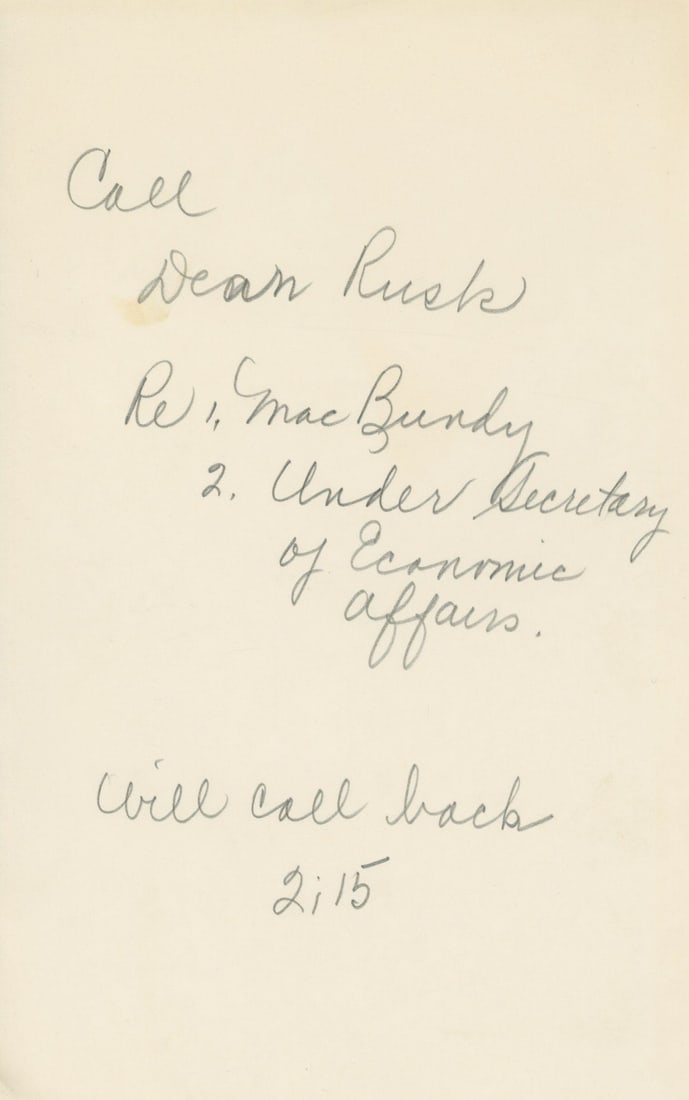 Call
Dean Rusk
Re 1. Mac Bundy
2. Under Secretary
of Economic
Affairs.
Will call back
2:15